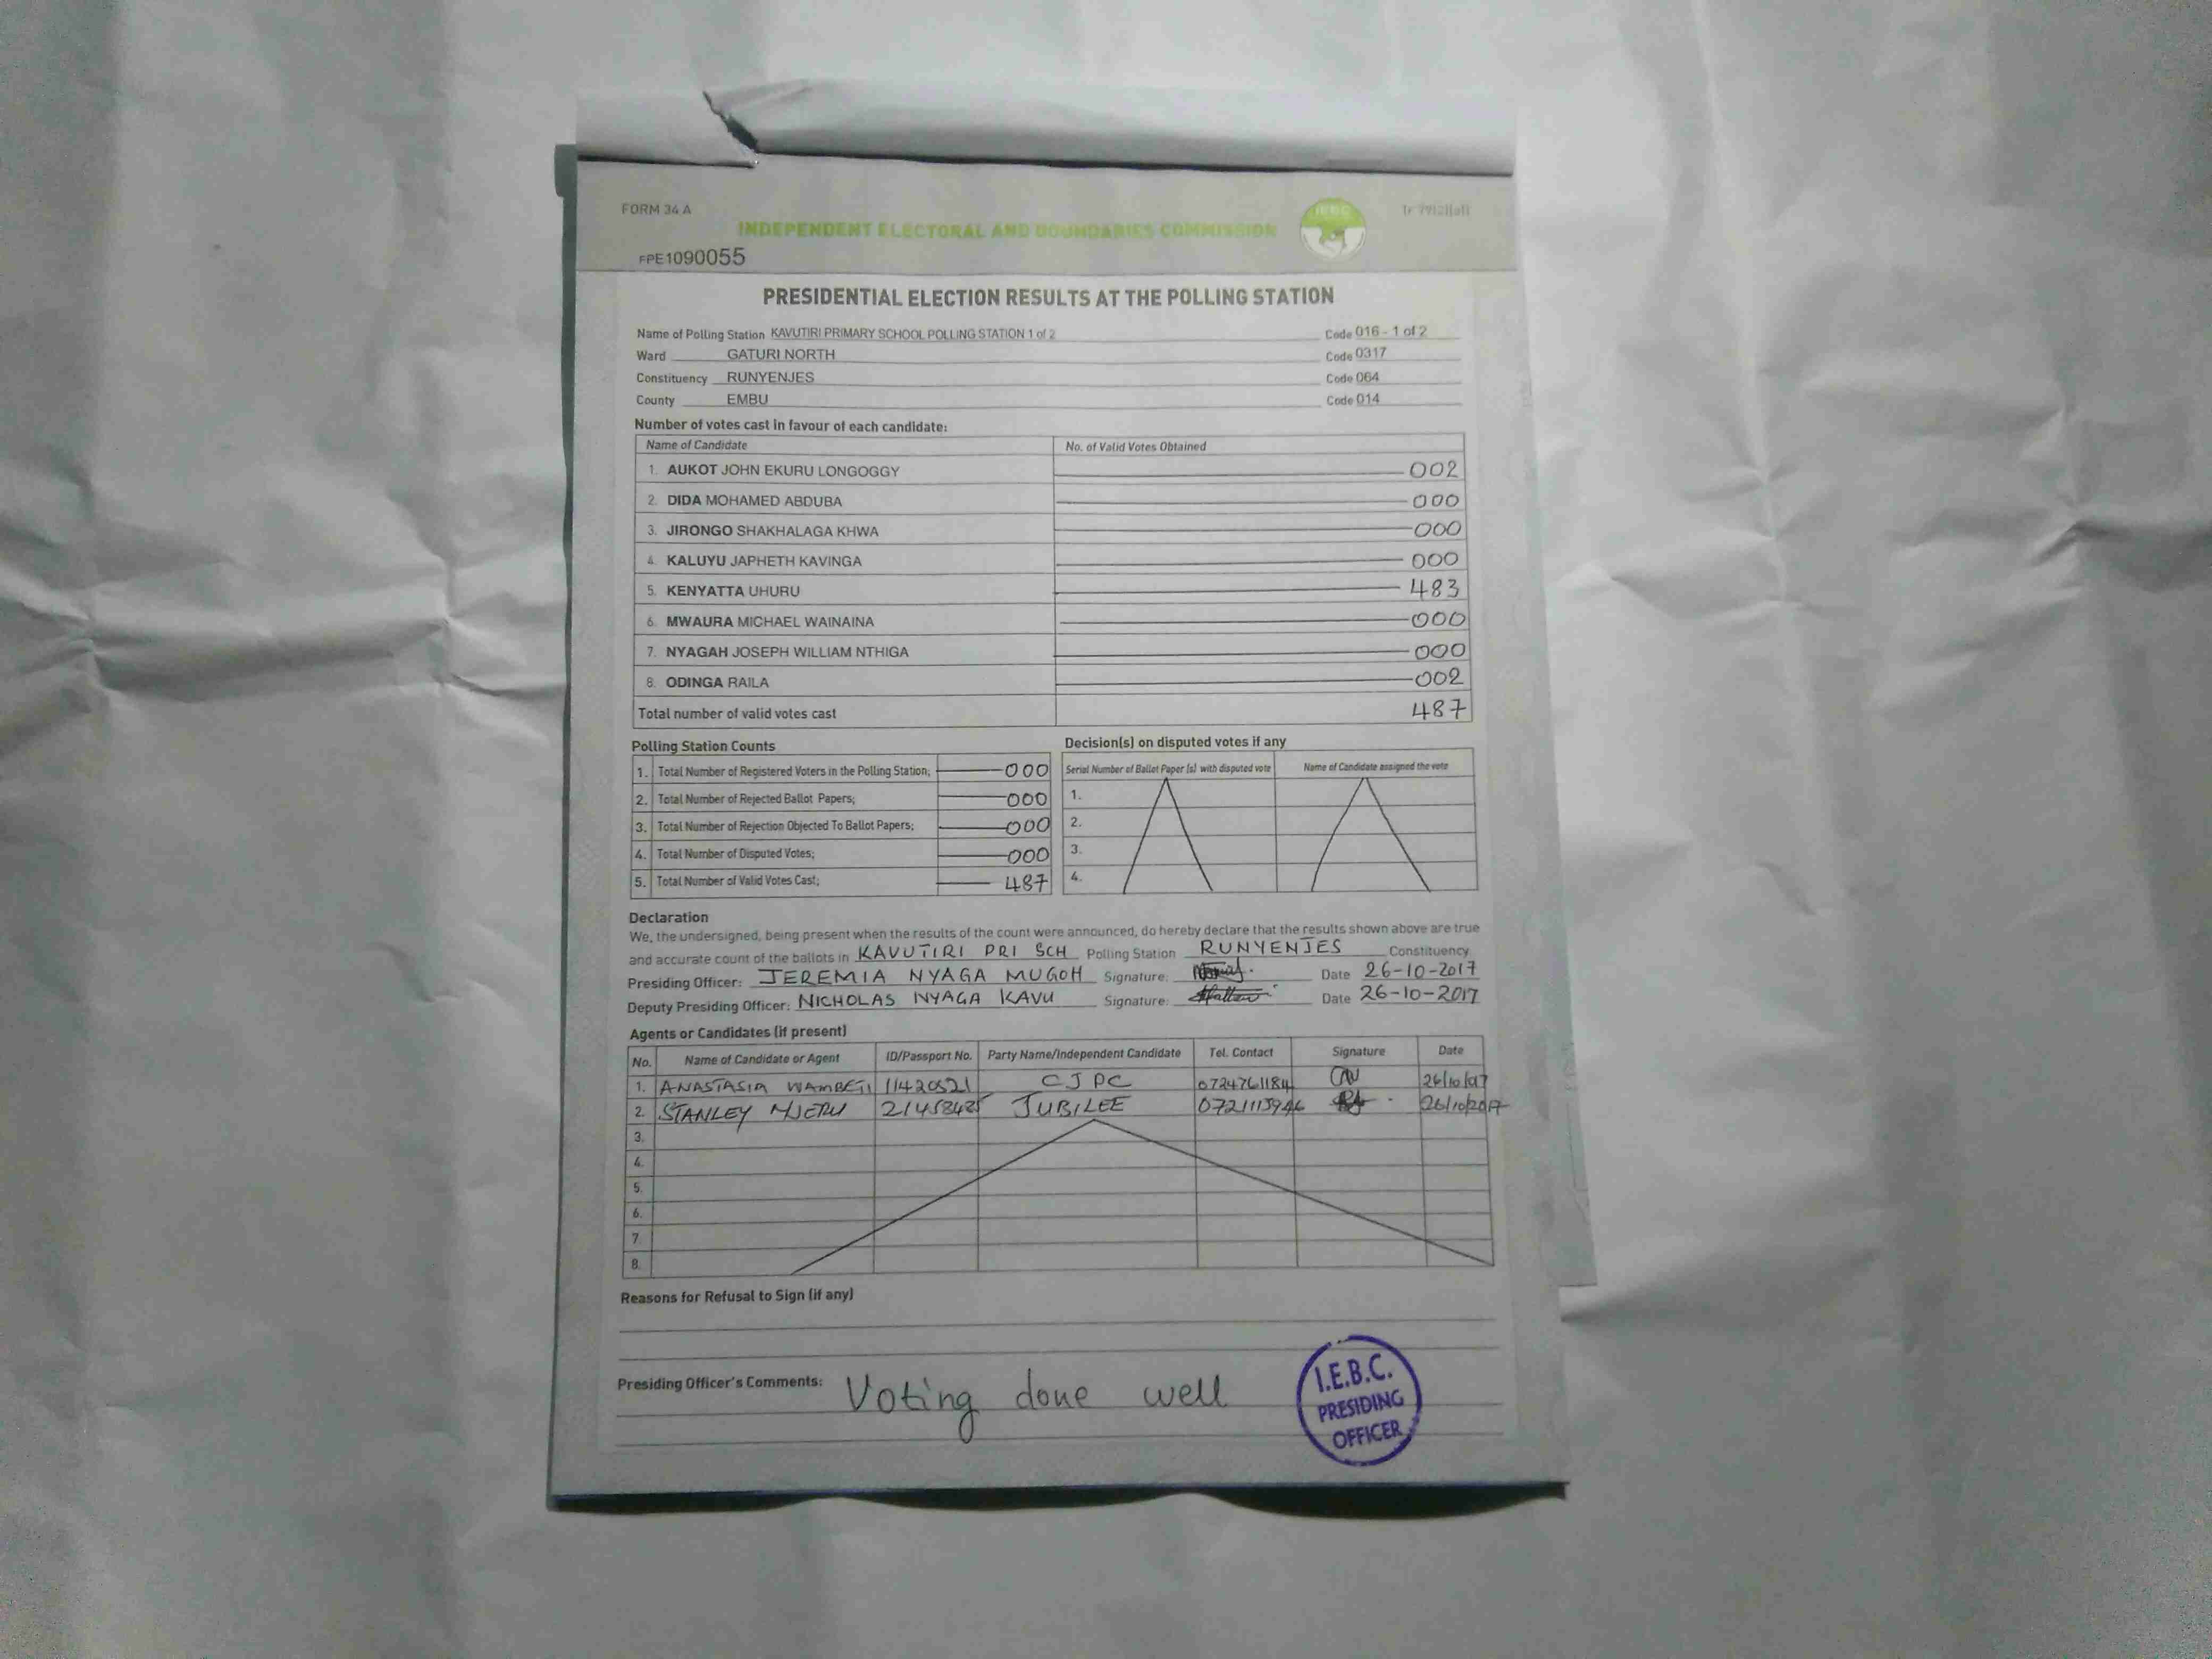 FORM 34 A
INDEPENDENT ELECTORAL AND BOUNDARIES COMMISSION
IEBC
FPE1090055
PRESIDENTIAL ELECTION RESULTS AT THE POLLING STATION
Name of Polling Station KAVUTIRI PRIMARY SCHOOL POLLING STATION 1 of 2 Code 016 - 1 of 2
Ward GATURI NORTH Code 0317
Constituency RUNYENJES Code 064
County EMBU Code 014
Number of votes cast in favour of each candidate:
Name of Candidate No. of Valid Votes Obtained
1. AUKOT JOHN EKURU LONGOGGY 002
2. DIDA MOHAMED ABDUBA 000
3. JIRONGO SHAKHALAGA KHWA 000
4. KALUYU JAPHETH KAVINGA 000
5. KENYATTA UHURU 483
6. MWAURA MICHAEL WAINAINA 000
7. NYAGAH JOSEPH WILLIAM NTHIGA 000
8. ODINGA RAILA 002
Total number of valid votes cast 487
Polling Station Counts
1. Total Number of Registered Voters in the Polling Station; 000
2. Total Number of Rejected Ballot Papers; 000
3. Total Number of Rejection Objected To Ballot Papers; 000
4. Total Number of Disputed Votes; 000
5. Total Number of Valid Votes Cast; 487
Decision(s) on disputed votes if any
Serial Number of Ballot Paper (s) with disputed vote Name of Candidate assigned the vote
1.
2.
3.
4.
Declaration
We, the undersigned, being present when the results of the count were announced, do hereby declare that the results shown above are true
and accurate count of the ballots in KAVUTIRI PRI SCH Polling Station RUNYENJES Constituency
Presiding Officer: JEREMIA NYAGA MUGOH Signature: Date 26-10-2017
Deputy Presiding Officer: NICHOLAS NYAGA KAVU Signature: Date 26-10-2017
Agents or Candidates (if present)
No. Name of Candidate or Agent ID/Passport No. Party Name/Independent Candidate Tel. Contact Signature Date
1. ANASTASIA WAMBETI 11420521 CJPC 0724761184
2. STANLEY NJERU JUBILEE 26/10/2017
3.
4.
5.
6.
7.
8.
Reasons for Refusal to Sign (if any)
Presiding Officer's Comments: Voting done well
I.E.B.C.
PRESIDING
OFFICER